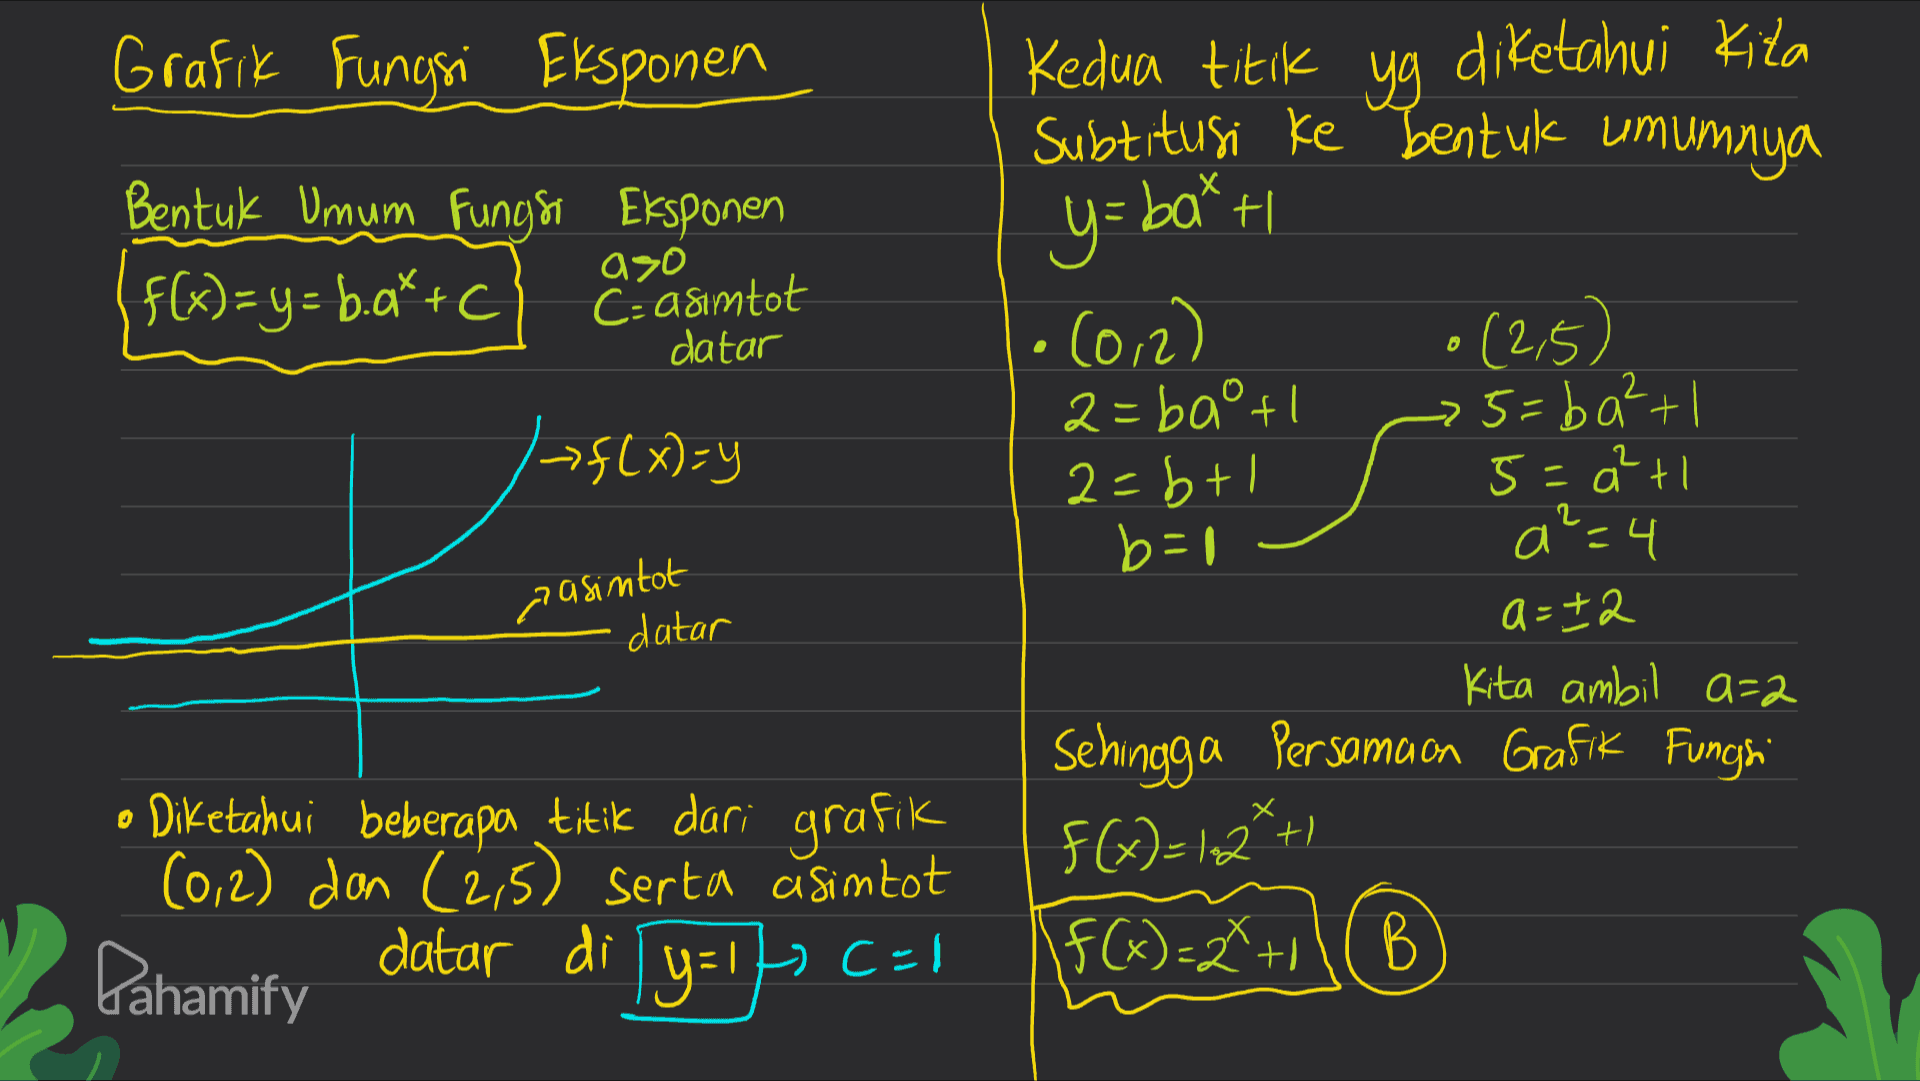 Grafik Fungsi Eksponen
Bentuk Umum Fungsi Eksponen
f(x)=y=b.aˣ+c
a>0
C=asimtot
datar
→f(x)=y
asimtot
datar
• Diketahui beberapa titik dari grafik
(0,2) dan (2,5) serta asimtot
datar di y=1 → C=1
Pahamify
Kedua titik yg diketahui kita
Subtitusi ke bentuk umumnya
y=baˣ+1
• (0,2)
2=ba⁰+1
2=b+1
b=1
• (2,5)
→ 5=ba²+1
5=a²+1
a²=4
a=±2
Kita ambil a=2
Sehingga Persamaan Grafik Fungsi
f(x)=1.2ˣ+1
f(x)=2ˣ+1 B